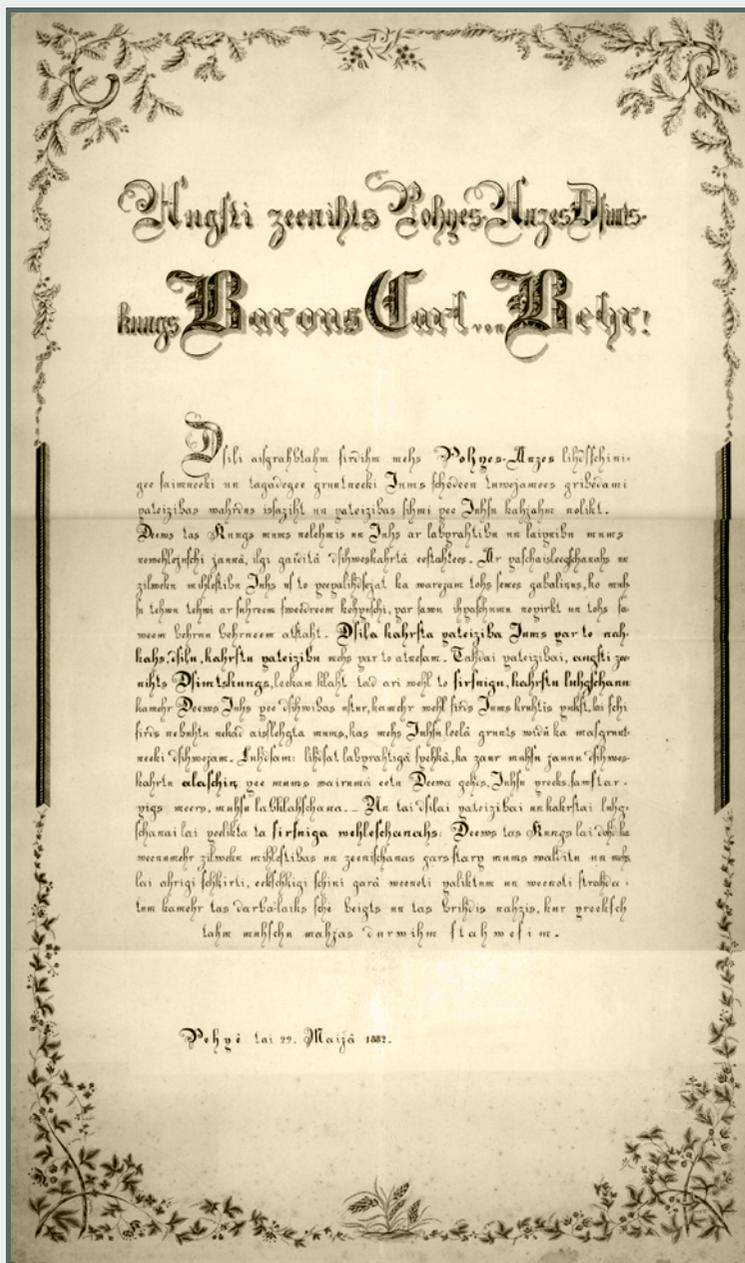 Augsti zeenihts Pohpes-Anzes Dsimts-
kungs Barons Carl von Behr!
Dsili aisgrahbtahm sirdihm mehs Pohpes-Anzes lihdsschini-
gee saimneeki un tagadegee gruntneeki Jums schodeen tuwojamees gribedami
pateizibas wahrdus issaziht un pateizibas sihmi pee Juhsu kahjahm nolikt.
Deews tas Kungs mums nolehmis un Juhs ar labprahtibu un laipnibu mums
nowehlejuschi jaunâ, ilgi gaiditâ dsihweskahrtâ eestahtees. Ar paschaisleegschanahs un
zilweku mihlestibu Juhs us to peepalihdsejat ka warejam tohs semes gabaliņus, ko muh-
su tehwu tehwi ar suhreem sweedreem kohpuschi, par sawu ihpaschumu nopirkt un tohs sa-
weem behrnu behrneem atstaht. Dsila kahrsta pateiziba Jums par to nah-
kahs, dsilu, kahrstu pateizibu mehs par to atnesam. Tahdai pateizibai, augsti zee-
nihts Dsimtskungs, leekam klaht tad ari wehl to sirsnigu, kahrstu luhgschanu
kamehr Deews Juhs pee dsihwibas ustur, kamehr wehl sirds Jums kruhtis pukst, lai schi
sirds nebuhtu nekad aisslehgta mums, kas mehs Juhsu leelâ grunts widû ka masgrunt-
neeki dsihwojam. Luhdsam: lihdsat labprahtigâ spehkâ, ka zaur muhsu jaunu dsihwes-
kahrtu alaschiņ pee mums wairumâ eetu Deewa gohds, Juhsu preeks, sawstar-
pigs meers, muhsu labklahschana. – Un tai dsilai pateizibai un kahrstai luhg-
schanai lai peelikta ta sirsniga wehleschanahs: Deews tas Kungs lai dohd ka
weenumehr zilweku mihlestibas un zeenischanas gars starp mums walditu un mehs
lai ahrigi schkirti, eekschkigi schini garâ weenoti paliktum un weenoti strahda-
tum kamehr tas darba-laiks sche beigts un tas brihdis nahzis, kur preeksch
tahm muhschu mahjas durwihm stahwesim.
Pohpê tai 29. Maijâ 1882.